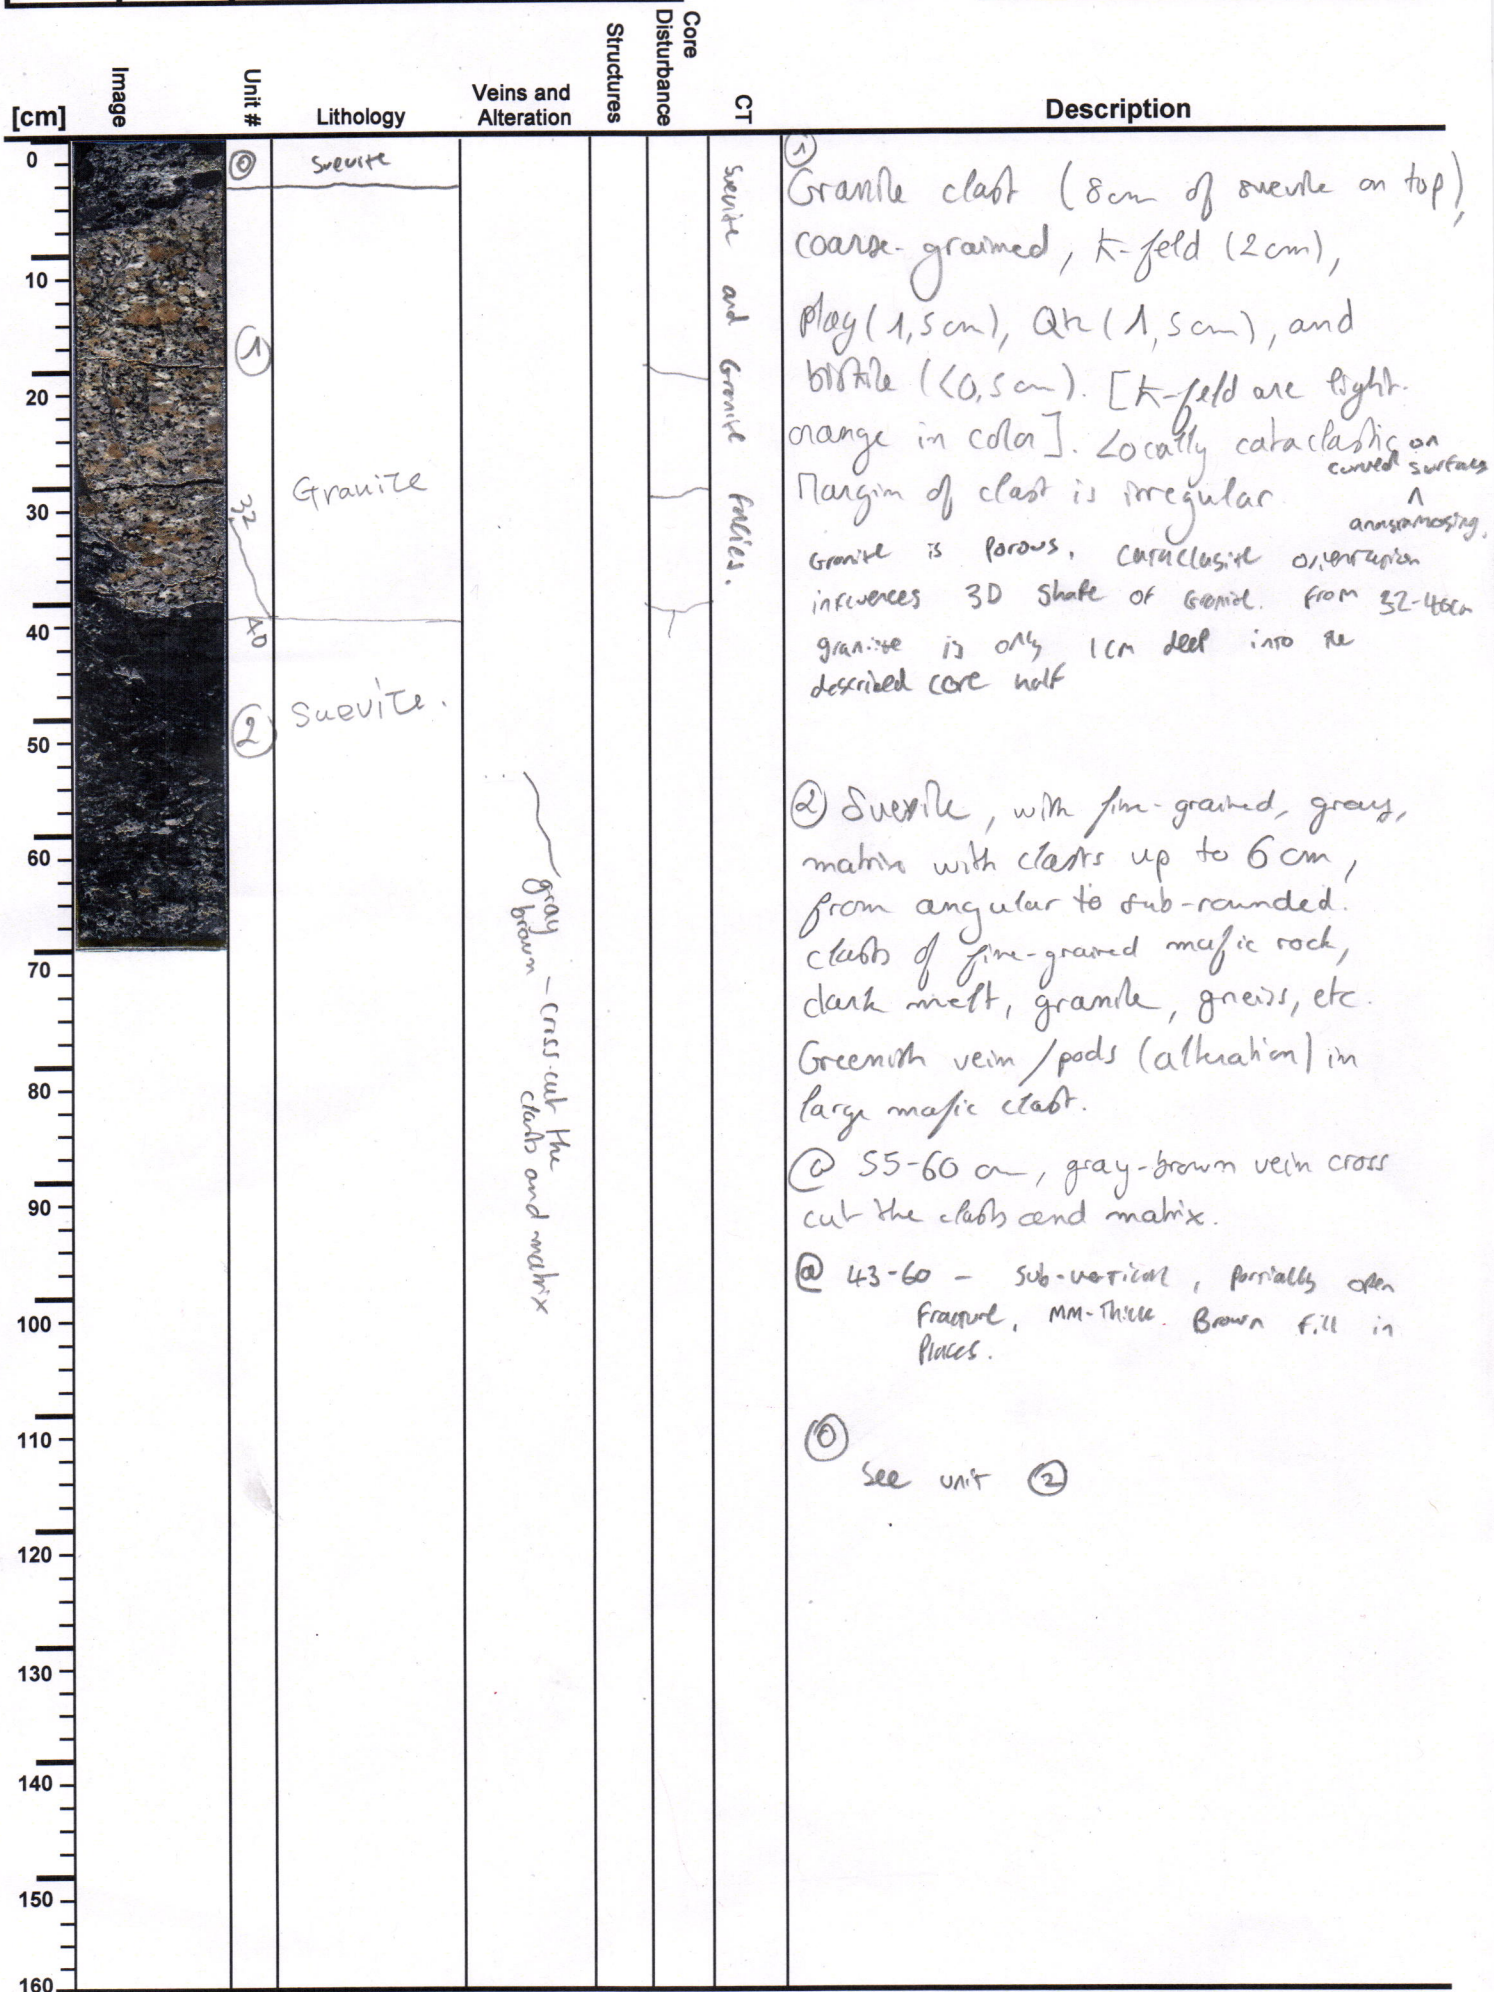 [cm]
Image
Unit #
Lithology
Veins and
Alteration
Structures
Core
Disturbance
CT
Description
0
10
20
30
40
50
60
70
80
90
100
110
120
130
140
150
160
0
1
32
40
2
Suevite
Granite
Suevite.
gray
brown - cross-cut the
clasts and matrix
Suevite and Granite facies.
1
Granite clast (8cm of suevite on top),
coarse-grained, K-feld (2cm),
plag (1,5cm), Qtz (1,5cm), and
biotite (<0,5cm). [K-feld are light-
orange in color]. Locally cataclastic on
curved surfaces
Margin of clast is irregular ^
anastamosing.
Granite is porous. Cataclasite orientation
influences 3D shape of Granite. From 32-40cm
granite is only 1cm deep into the
described core half
2 Suevite, with fine-grained, gray,
matrix with clasts up to 6 cm,
from angular to sub-rounded.
clasts of fine-grained mafic rock,
dark melt, granite, gneiss, etc.
Greenish vein / pods (alteration) in
large mafic clast.
@ 55-60 cm, gray-brown vein cross
cut the clasts and matrix.
@ 43-60 - Sub-vertical, partially open
fracture, mm-thick. Brown fill in
places.
0
See unit 2